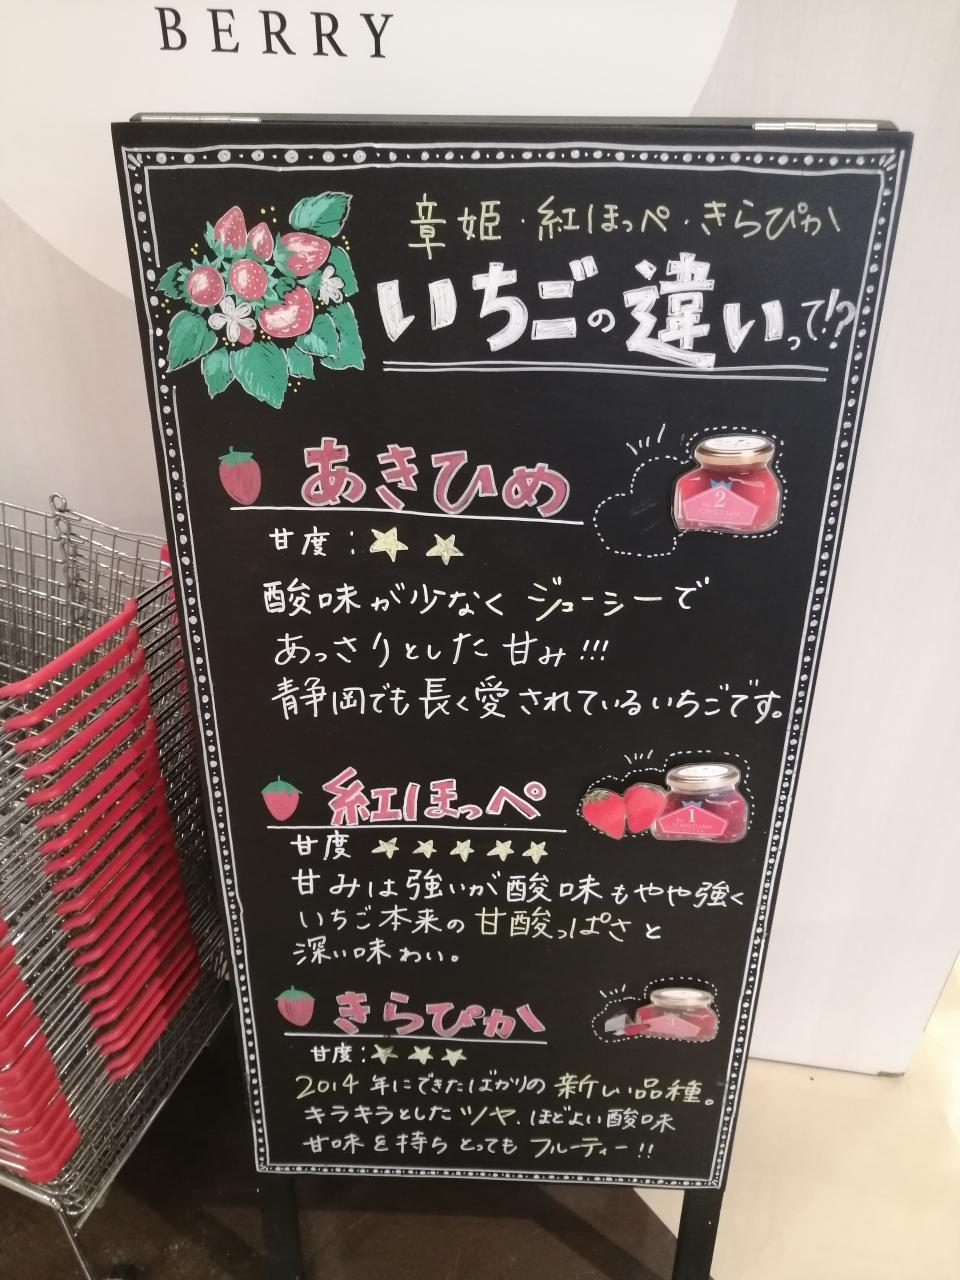 BERRY
章姫・紅ほっぺ・きらぴか
いちごの違いって!?
あきひめ
2
ICHIGO JAM
甘度：★★
酸味が少なく ジューシーで
あっさりとした 甘み!!!
静岡でも長く愛されているいちごです。
紅ほっぺ
No.1
ICHIGO JAM
甘度 ★★★★★
甘みは強いが酸味もやや強く
いちご本来の甘酸っぱさと
深い味わい。
きらぴか
3
甘度：★★★
2014年にできたばかりの新しい品種。
キラキラとしたツヤ、ほどよい酸味
甘味を持ちとってもフルーティー!!